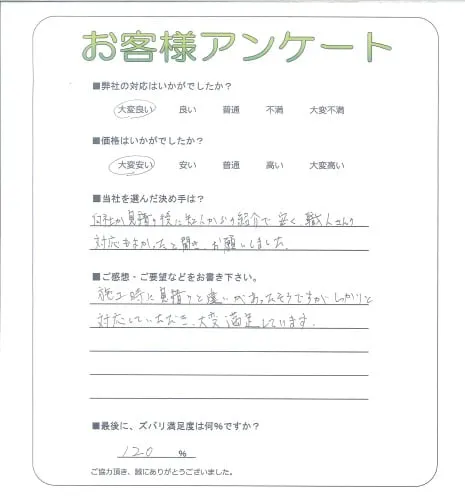 お客様アンケート
■弊社の対応はいかがでしたか？
大変良い 良い 普通 不満 大変不満
■価格はいかがでしたか？
大変安い 安い 普通 高い 大変高い
■当社を選んだ決め手は？
何社か見積り後に知人からの紹介で安く職人さんの
対応もよかったと聞き、お願いしました。
■ご感想・ご要望などをお書き下さい。
施工時に見積りと違いがあったそうですがしっかりと
対応していただき、大変満足しています。
■最後に、ズバリ満足度は何％ですか？
120 ％
ご協力頂き、誠にありがとうございました。